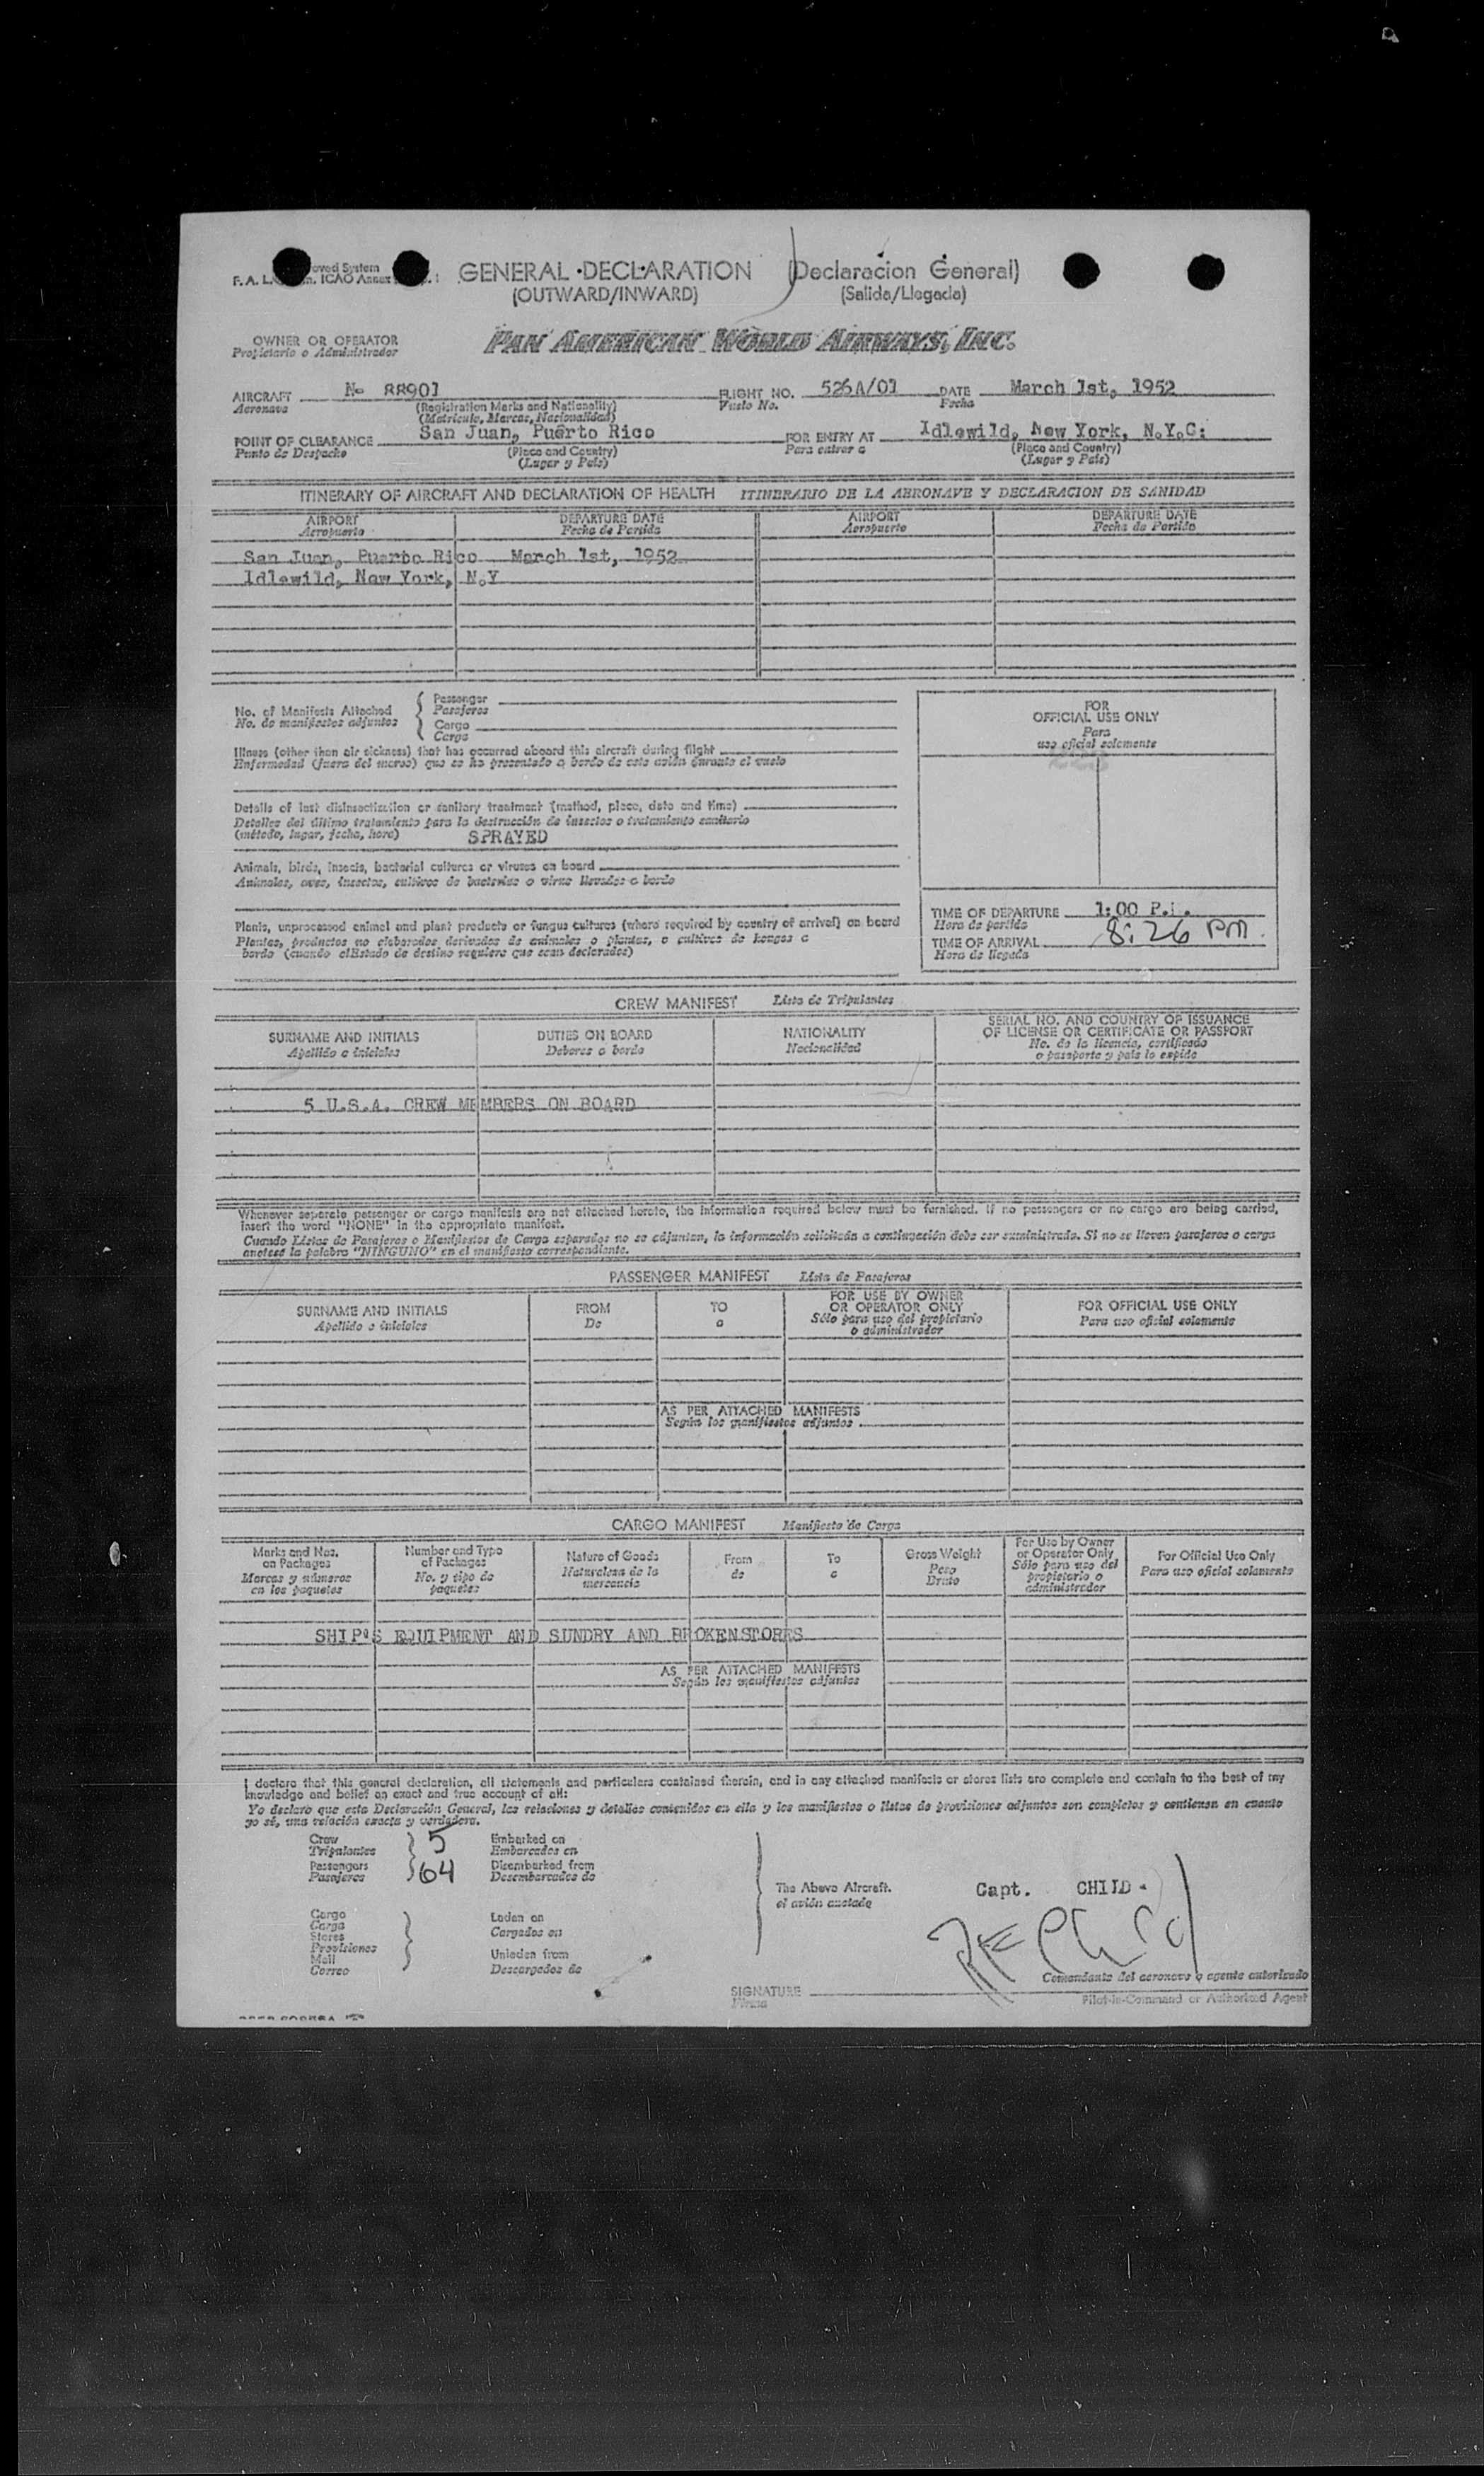 GENERAL DECLARATION (Declaracion General)
(OUTWARD/INWARD) (Salida/Llegada)
OWNER OR OPERATOR PAN AMERICAN WORLD AIRWAYS, INC.
Propietario o Administrador
AIRCRAFT No 88901 FLIGHT NO. 526A/01 DATE March 1st, 1952
Aeronave (Registration Marks and Nationality) Vuelo No. Fecha
(Matricula, Marcas, Nacionalidad)
POINT OF CLEARANCE San Juan, Puerto Rico FOR ENTRY AT Idlewild, New York, N.Y.C.
Punto de Despacho (Place and Country) Para entrar a (Place and Country)
(Lugar y País) (Lugar y País)
ITINERARY OF AIRCRAFT AND DECLARATION OF HEALTH ITINERARIO DE LA AERONAVE Y DECLARACION DE SANIDAD
AIRPORT DEPARTURE DATE AIRPORT DEPARTURE DATE
Aeropuerto Fecha de Partida Aeropuerto Fecha de Partida
San Juan, Puerto Rico March 1st, 1952
Idlewild, New York, N.Y
No. of Manifests Attached Passenger
No. de manifiestos adjuntos Pasajeros
Cargo
Carga
Illness (other than air sickness) that has occurred aboard this aircraft during flight
Enfermedad (fuera del mareo) que se ha presentado a bordo de este avión durante el vuelo
Details of last disinsectization or sanitary treatment (method, place, date and time)
Detalles del último tratamiento para la destrucción de insectos o tratamiento sanitario
(método, lugar, fecha, hora) SPRAYED
Animals, birds, insects, bacterial cultures or viruses on board
Animales, aves, insectos, cultivos de bacterias o virus llevados a bordo
Plants, unprocessed animal and plant products or fungus cultures (where required by country of arrival) on board
Plantas, productos no elaborados derivados de animales o plantas, o cultivos de hongos a
bordo (cuando el Estado de destino requiera que sean declarados)
FOR
OFFICIAL USE ONLY
Para
uso oficial solamente
TIME OF DEPARTURE 1:00 P.
Hora de partida
TIME OF ARRIVAL 8:26 PM.
Hora de llegada
CREW MANIFEST Lista de Tripulantes
SURNAME AND INITIALS DUTIES ON BOARD NATIONALITY SERIAL NO. AND COUNTRY OF ISSUANCE
OF LICENSE OR CERTIFICATE OR PASSPORT
Apellido e iniciales Deberes a bordo Nacionalidad No. de la licencia, certificado
o pasaporte y país lo expide
5 U.S.A. CREW MEMBERS ON BOARD
Whenever separate passenger or cargo manifests are not attached hereto, the information required below must be furnished. If no passengers or no cargo are being carried,
insert the word "NONE" in the appropriate manifest.
Cuando Listas de Pasajeros o Manifiestos de Carga separados no se adjuntan, la información solicitada a continuación debe ser suministrada. Si no se lleven pasajeros o carga
anotese la palabra "NINGUNO" en el manifiesto correspondiente.
PASSENGER MANIFEST Lista de Pasajeros
SURNAME AND INITIALS FROM TO FOR USE BY OWNER
OR OPERATOR ONLY FOR OFFICIAL USE ONLY
Apellido e iniciales De a Sólo para uso del propietario
o administrador Para uso oficial solamente
AS PER ATTACHED MANIFESTS
Según los manifiestos adjuntos
CARGO MANIFEST Manifiesto de Carga
Marks and Nos.
on Packages
Marcas y números
en los paquetes
Number and Type
of Packages
No. y tipo de
paquetes
Nature of Goods
Naturaleza de la
mercancia
From
de
To
a
Gross Weight
Peso
Bruto
For Use by Owner
or Operator Only
Sólo para uso del
propietario o
administrador
For Official Use Only
Para uso oficial solamente
SHIP'S EQUIPMENT AND SUNDRY AND BROKENSTORES
AS PER ATTACHED MANIFESTS
Según los manifiestos adjuntos
I declare that this general declaration, all statements and particulars contained therein, and in any attached manifests or stores lists are complete and contain to the best of my
knowledge and belief an exact and true account of all:
Yo declaro que esta Declaración General, las relaciones y detalles contenidos en ella y los manifiestos o listas de provisiones adjuntos son completos y contienen en cuanto
yo sé, una relación exacta y verdadera.
Crew 5 Embarked on
Tripulantes Embarcados en
Passengers 64 Disembarked from
Pasajeros Desembarcados de
Cargo Laden on
Carga Cargados en
Stores
Provisiones
Mail Unladen from
Correo Descargados de
The Above Aircraft.
el avión anotado
Capt. CHILD.
Comandante del aeronave o agente autorizado
SIGNATURE
Firma
Pilot-in-Command or Authorized Agent